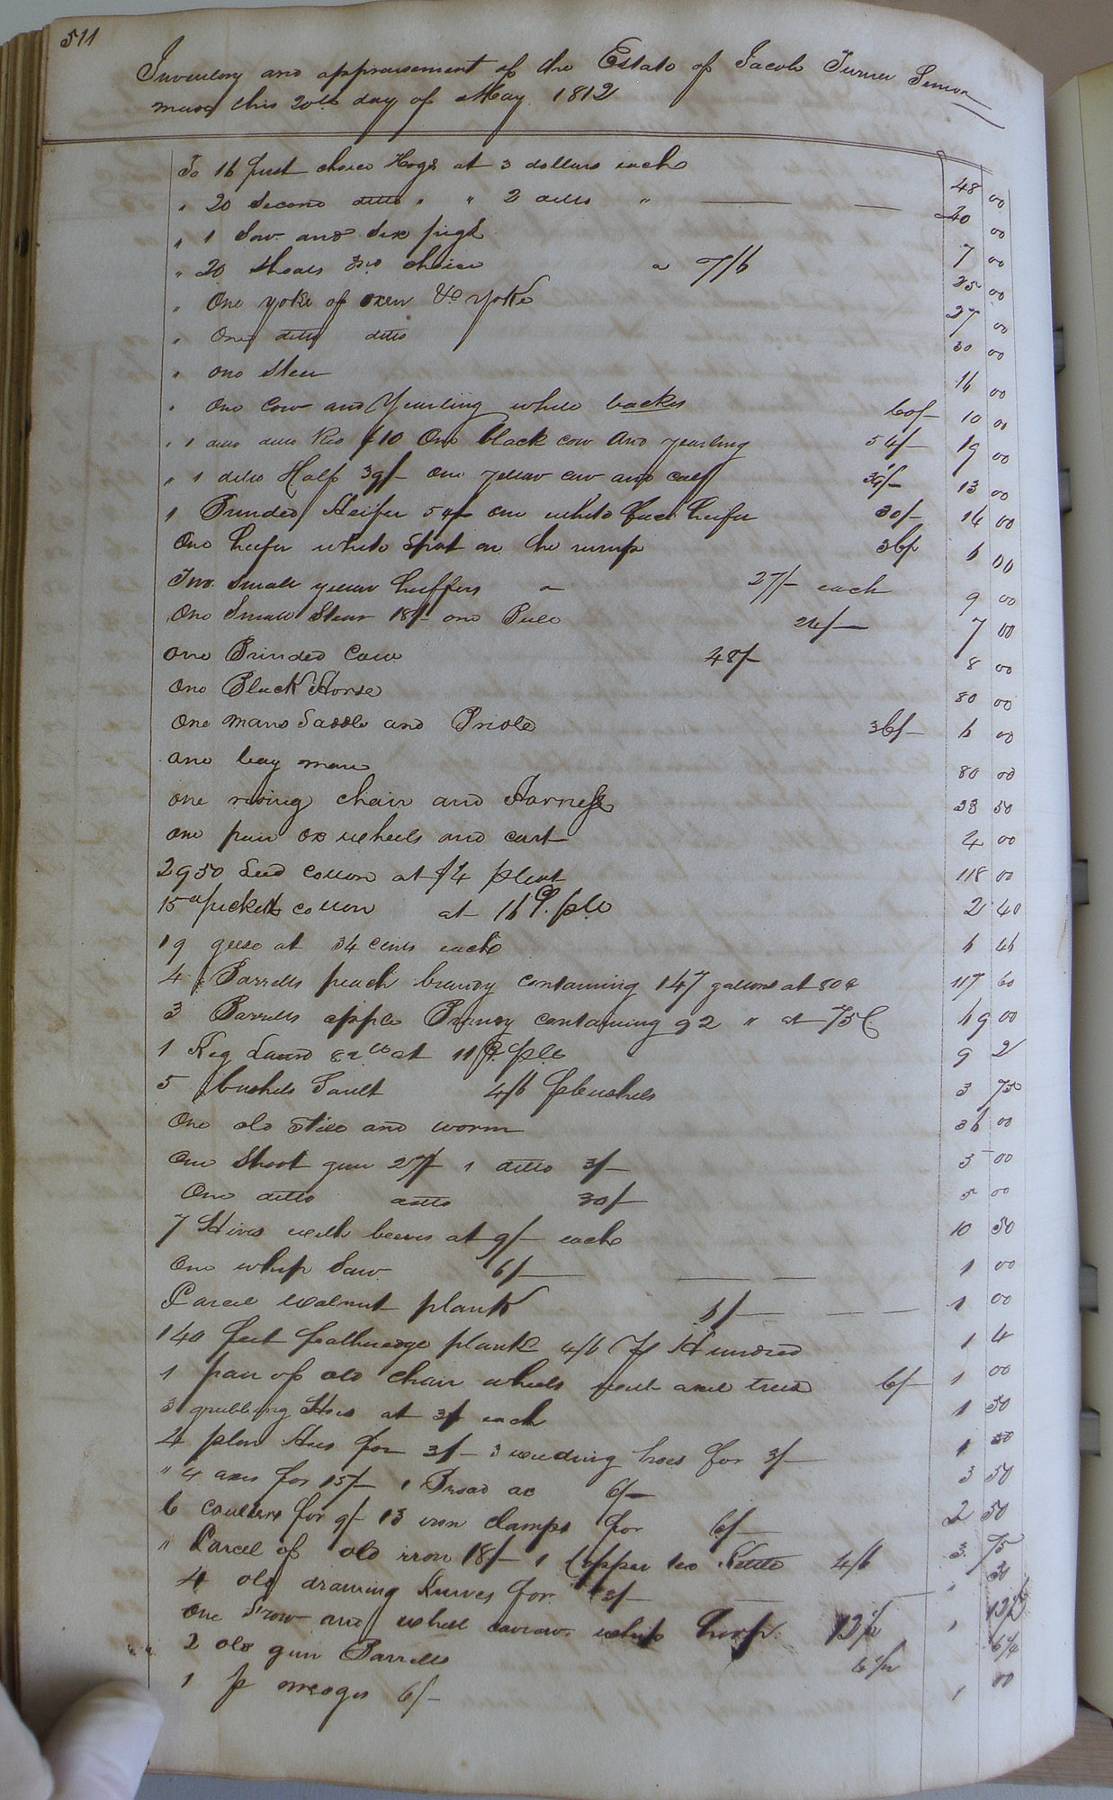 511
Inventory and appraisement of the Estate of Jacob Turner Senior
made this 20th day of May 1812
To 16 first choice Hogs at 3 dollars each 48 00
" 20 Second ditto " " 2 ditto " 40 00
" 1 Sow and Six pigs 7 00
" 20 Shoats 3rd choice a 7/6 25 00
" One yoke of oxen & yoke 27 00
" One ditto ditto 30 00
" one Steer 16 00
" One Cow and Yearling white backes 60/- 10 00
" 1 ditto ditto Red $10 One black cow and yearling 54/- 19 00
" 1 ditto Half 39/- one yellow cow and calf 39/- 13 00
1 Brinded Heifer 54/- one white face heifer 30/- 14 00
One heifer white Spot on the rump 36/ 6 00
Two small yellow heiffers a 27/- each 9 00
One Small Stear 18/- one Bull 24/- 7 00
one Brinded Cow 48/- 8 00
One Black Horse 80 00
One mans Saddle and Bridle 36/- 6 00
one bay mare 80 00
one riding chair and Harness 23 50
one pair ox wheels and cart 4 00
2950 Seed cotton at $4 118 00
15 picked cotton at 16 2 40
19 geese at 34 cents each 6 46
4 Barrells peach brandy containing 147 gallons at 80c 117 60
3 Barrells apple Brandy containing 92 " at 75C 69 00
1 Keg Laurd 82 at 11 9 2
5 bushels Sault 4/6 bushels 3 75
One old Still and worm 36 00
One Shoot gun 27/- 1 ditto 3/- 5 00
One ditto ditto 30/- 5 00
7 Hives with beeves at 9/- each 10 50
One whip Saw 6/- 1 00
Parcel walnut plank 6/- 1 00
140 feet featheredge plank 4/6 Hundred 1 4
1 pair of old chair wheels and tree 6/- 1 00
3 grubbing Hoes at 3/ each 1 50
4 plow Hoes for 3/- 3 weeding hoes for 3/- 1 00
" 4 axes for 15/- 1 Broad ax 6/- 3 50
6 coulters for 9/- 13 iron clamps for 6/- 2 50
" Parcel of old iron 18/- 1 Copper tea Kettle 4/6 3 75
4 old drawing Knives for 3/- " 50
One Scrow and 13½
2 old gun Barrells 6¼
1 p 6/- 1 00